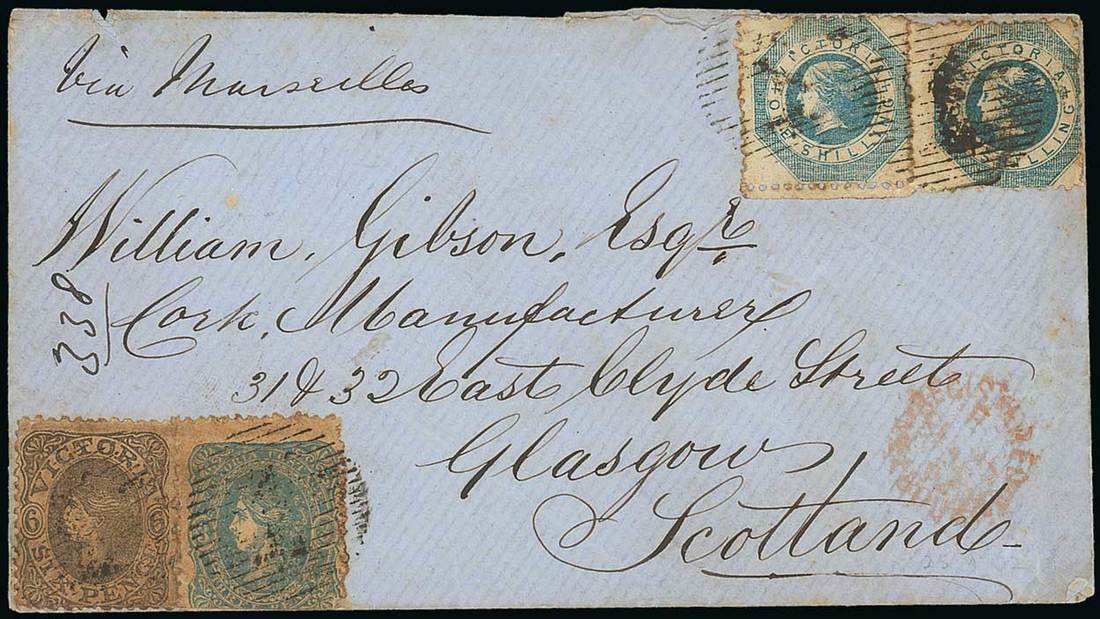 Via Marseilles
VICTORIA
ONE SHILLING
VICTORIA
SHILLING
William Gibson, Esqre
338
Cork, Manufacturer
31 & 32 East Clyde Street
Glasgow
Scotland
REGISTERED
VICTORIA
6 6
SIX PENCE